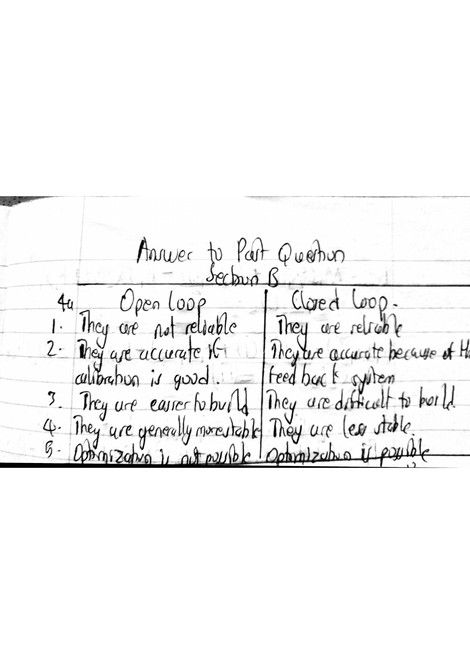 Answer to Past Question
Section B
4a Open Loop Closed Loop.
1. They are not reliable They are reliable
2. They are accurate if They are accurate because of
calibration is good. feed back system
3. They are easier to build They are difficult to build
4. They are generally more stable They are less stable.
5. Optimization is not possible Optimization is possible